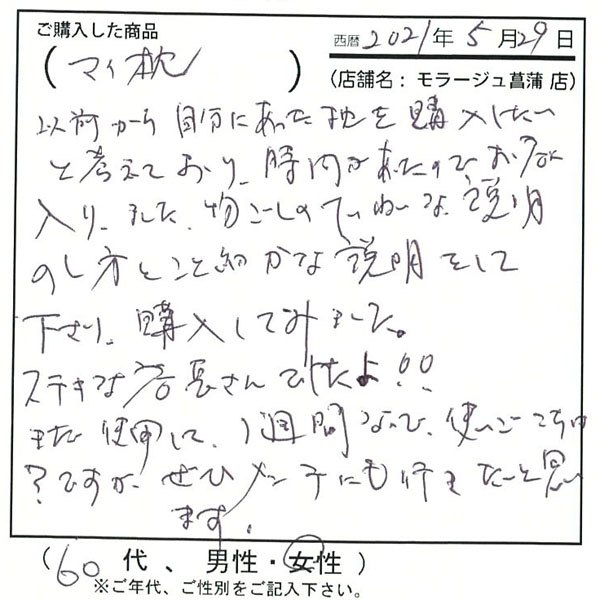 ご購入した商品
西暦 2021年 5月29日
(マイ枕)
(店舗名: モラージュ菖蒲 店)
以前から自分にあった枕を購入したい
と考えており、時間があったのでお店に
入りました。物ごしのていねいな説明
のし方とこと細かな説明をして
下さり、購入してみました。
ステキな店長さんでしたよ!!
まだ使用して、1週間なので、使いごこちは
?ですが、ぜひメンテにも行きたいと思い
ます。
(60代、男性・女性)
※ご年代、ご性別をご記入下さい。